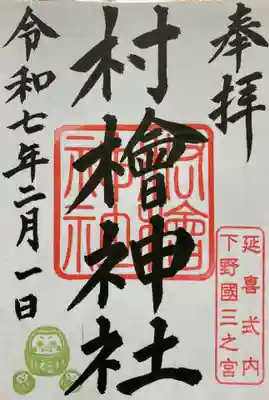 奉拝
延喜式内
下野國三之宮
村檜神社
令和七年二月一日